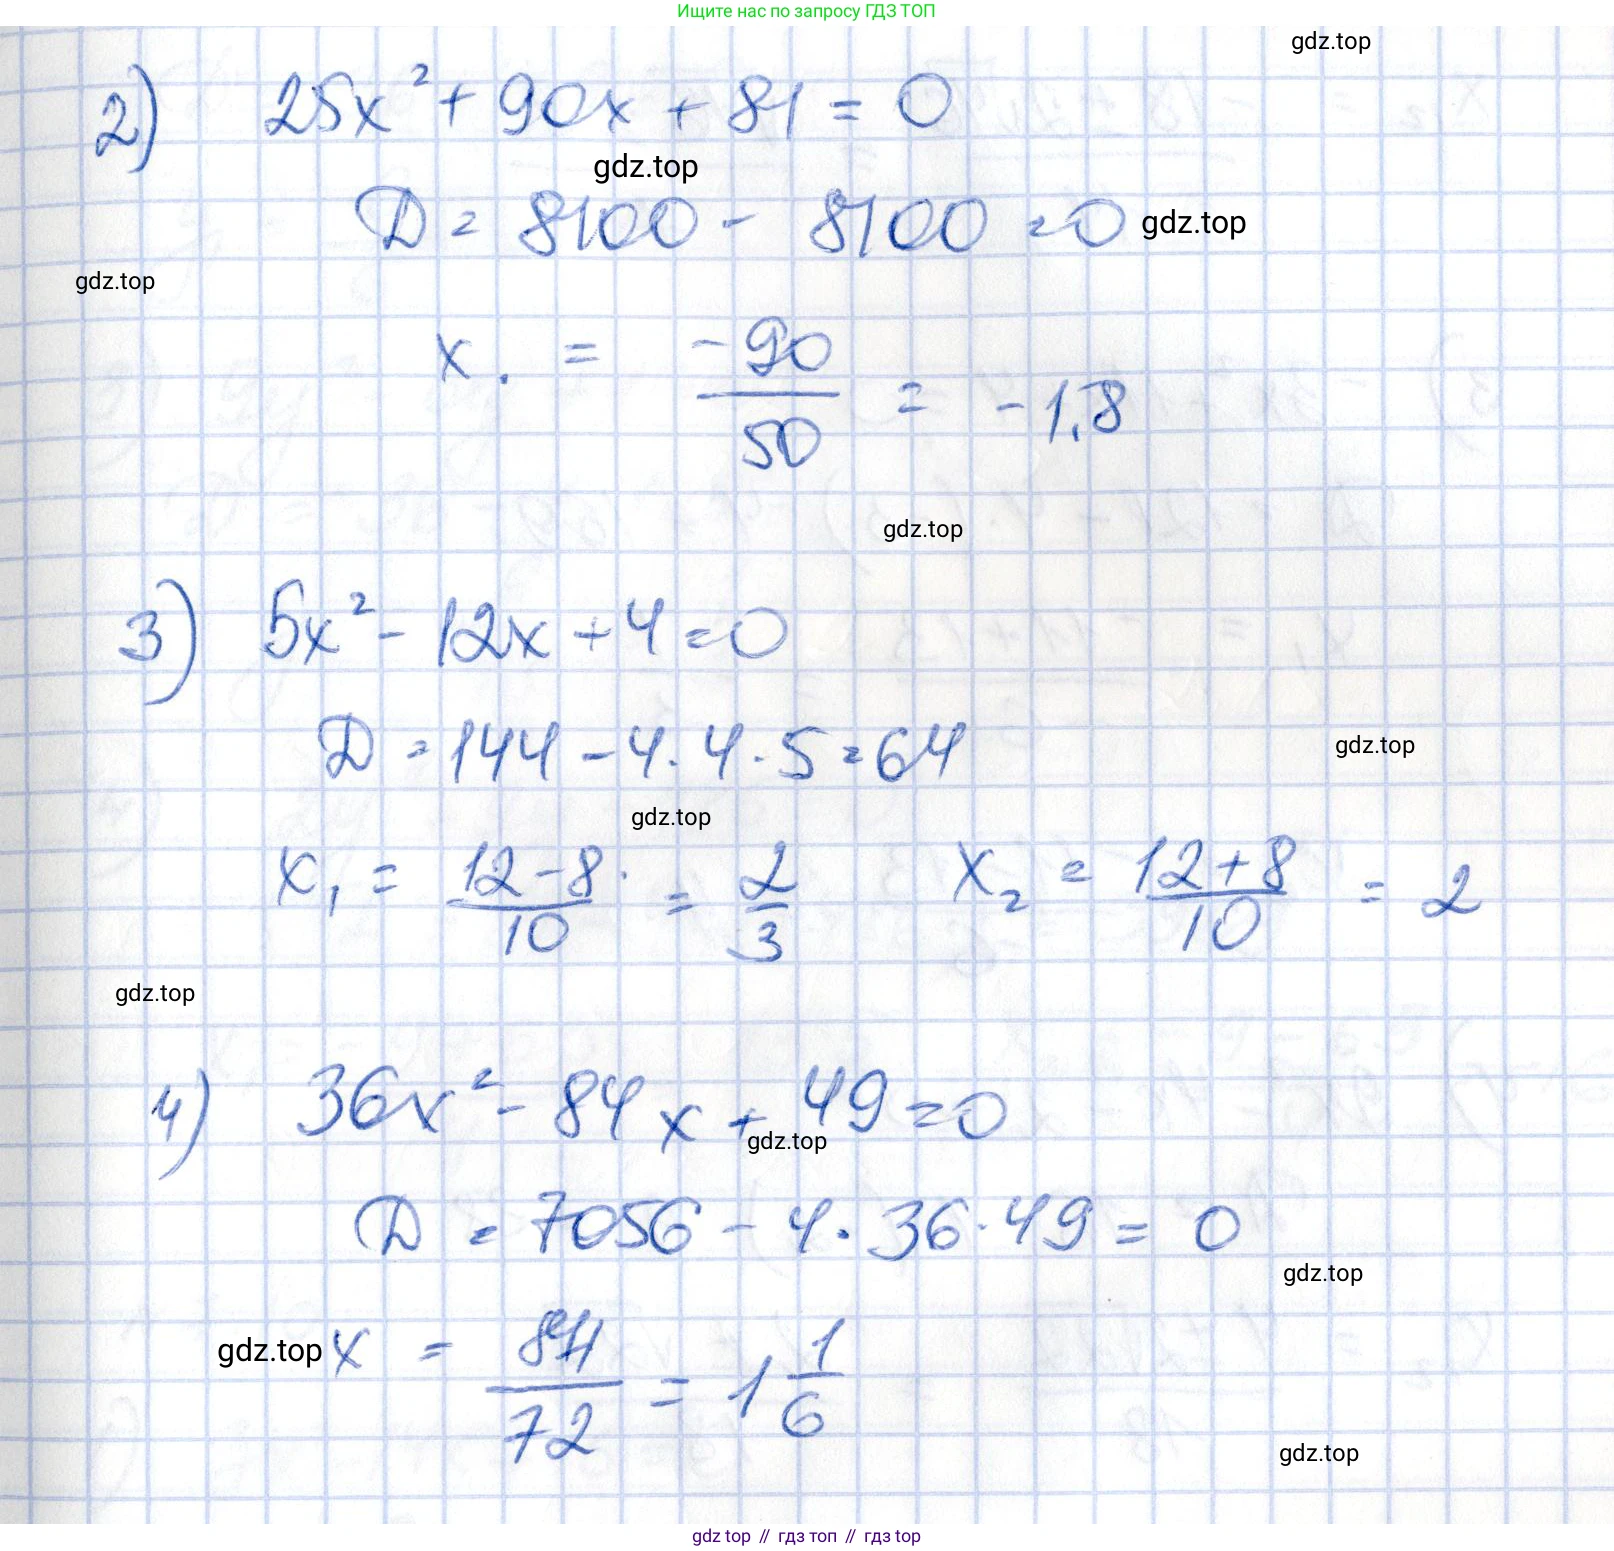 Ищите нас по запросу ГДЗ ТОП
gdz.top
2) 25x² + 90x + 81 = 0
gdz.top
D = 8100 - 8100 = 0 gdz.top
gdz.top
x₁ = -90/50 = -1,8
gdz.top
3) 5x² - 12x + 4 = 0
D = 144 - 4·4·5 = 64
gdz.top
gdz.top
x₁ = 12-8/10 = 2/3 x₂ = 12+8/10 = 2
gdz.top
4) 36x² - 84x + 49 = 0
gdz.top
D = 7056 - 4·36·49 = 0
gdz.top
gdz.top x = 84/72 = 1 1/6
gdz.top
gdz top // гдз топ // гдз top